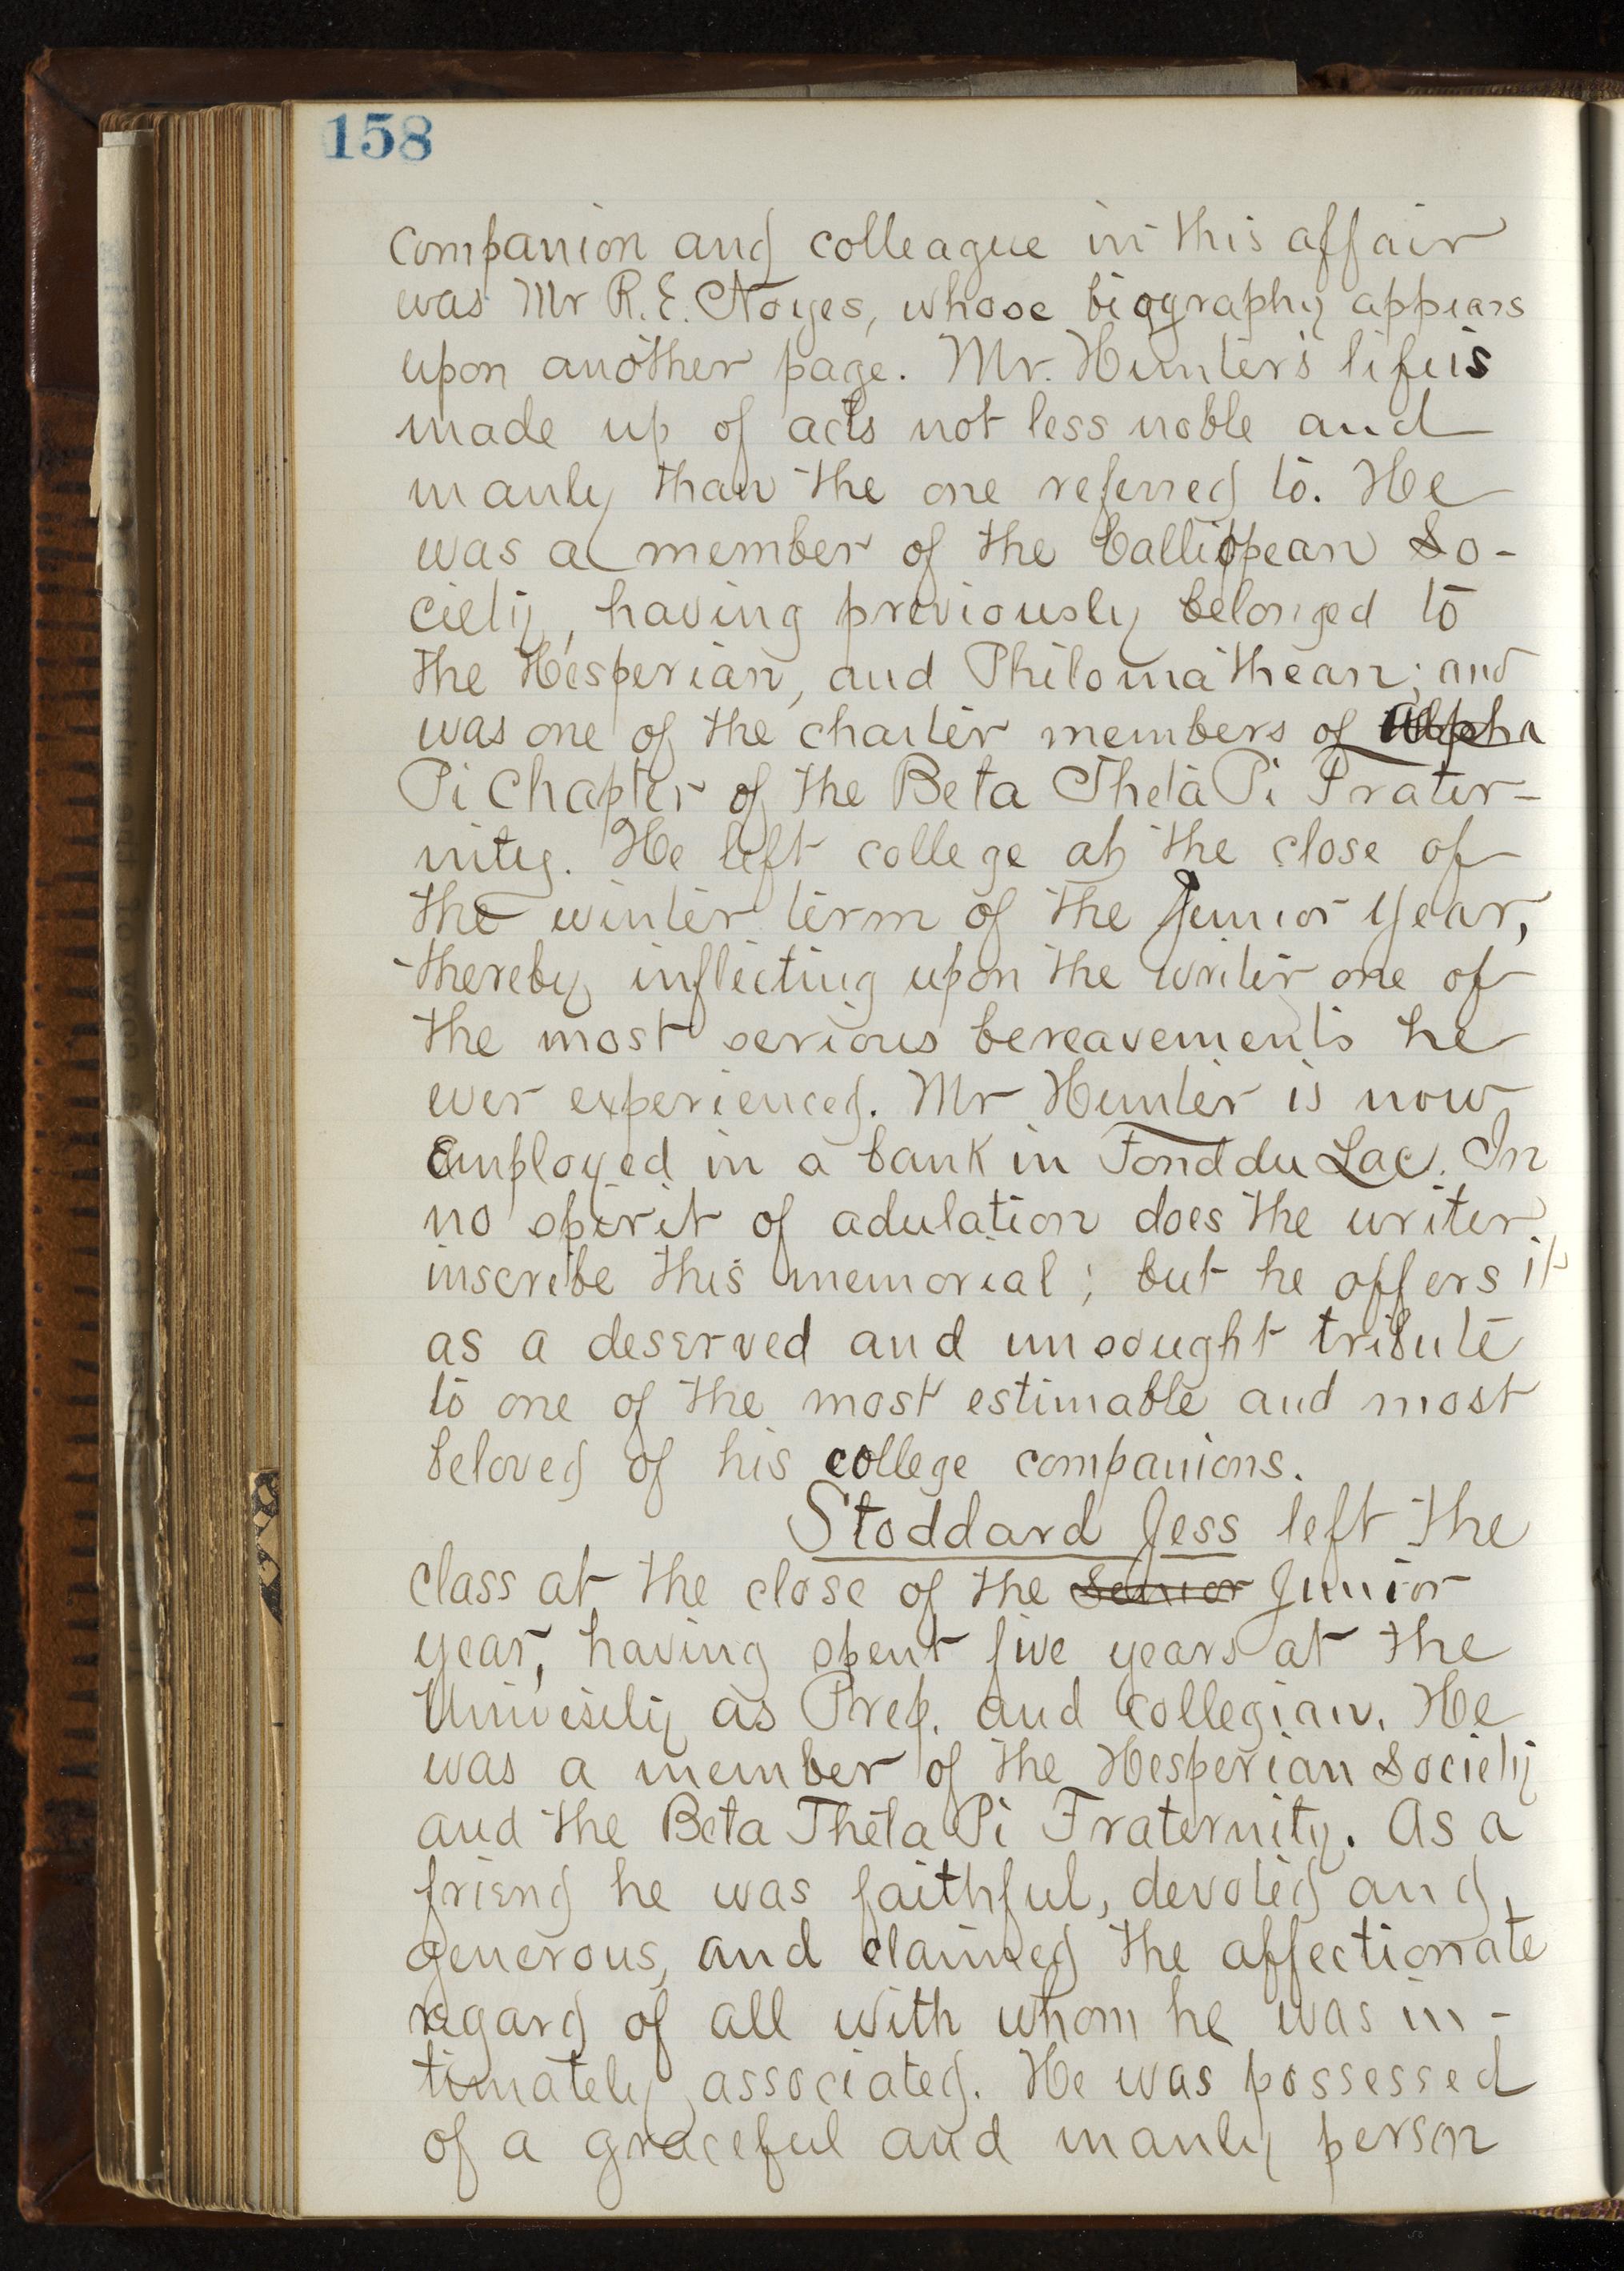 158
companion and colleague in this affair
was Mr R. E. Noyes, whose biography appears
upon another page. Mr. Hunter's life is
made up of acts not less noble and
manly than the one referred to. He
was a member of the Calliopean So-
ciety, having previously belonged to
the Hesperian, and Philomathean; and
was one of the charter members of Alpha
Pi Chapter of the Beta Theta Pi Frater-
nity. He left college at the close of
the winter term of the Junior Year,
thereby inflicting upon the writer one of
the most serious bereavements he
ever experienced. Mr Hunter is now
employed in a bank in Fond du Lac. In
no spirit of adulation does the writer
inscribe this memorial; but he offers it
as a deserved and unsought tribute
to one of the most estimable and most
beloved of his college companions.
Stoddard Jess left the
class at the close of the Senior Junior
year, having spent five years at the
University as Prep. and Collegian. He
was a member of the Hesperian Society
and the Beta Theta Pi Fraternity. As a
friend he was faithful, devoted and
generous, and claimed the affectionate
regard of all with whom he was in-
timately associated. He was possessed
of a graceful and manly person